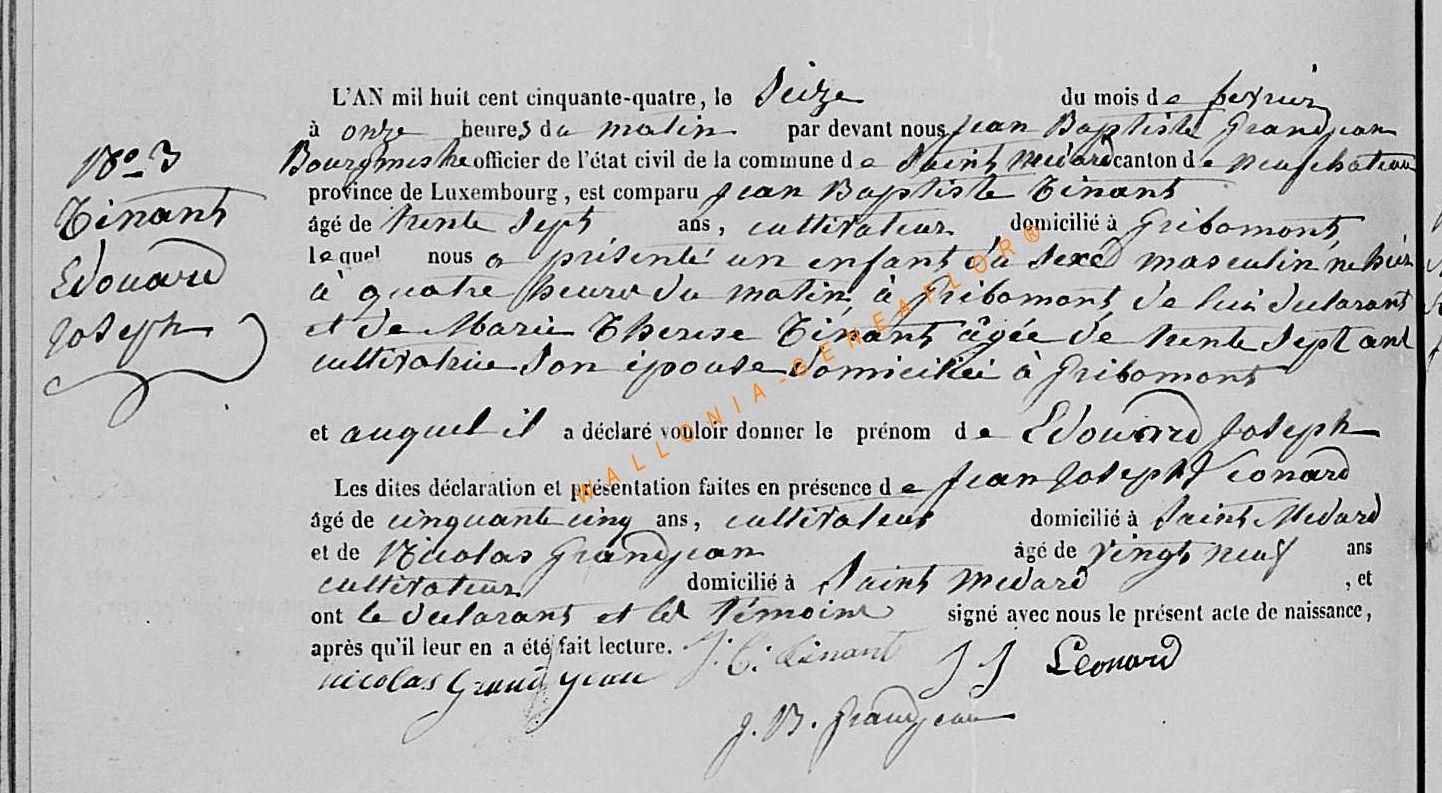 N° 3
Tinant
Edouard
Joseph
L'AN mil huit cent cinquante-quatre, le Seize du mois de fevrier
à onze heures du matin par devant nous Jean Baptiste Grandjean
Bourgmestre officier de l'état civil de la commune de Saint Médard canton de neufchateau
province de Luxembourg, est comparu Jean Baptiste Tinant
âgé de trente Sept ans, cultivateur domicilié à Gribomont
lequel nous a présenté un enfant du Sexe masculin, né hier
à quatre heures du matin à Gribomont, de lui déclarant
et de Marie Therese Tinant âgée de trente Sept ans
cultivatrice Son épouse domiciliée à Gribomont
et auquel il a déclaré vouloir donner le prénom de Edouard Joseph
Les dites déclaration et présentation faites en présence de Jean Joseph Leonard
âgé de cinquante cinq ans, cultivateur domicilié à Saint Médard
et de Nicolas Grandjean âgé de vingt neuf ans
cultivateur domicilié à Saint médard, et
ont le déclarant et les témoins signé avec nous le présent acte de naissance,
après qu'il leur en a été fait lecture. J. B. tinant J J Leonard
nicolas Grandjean
J. B. Grandjean
WALLONIA-GENEAFLOR®